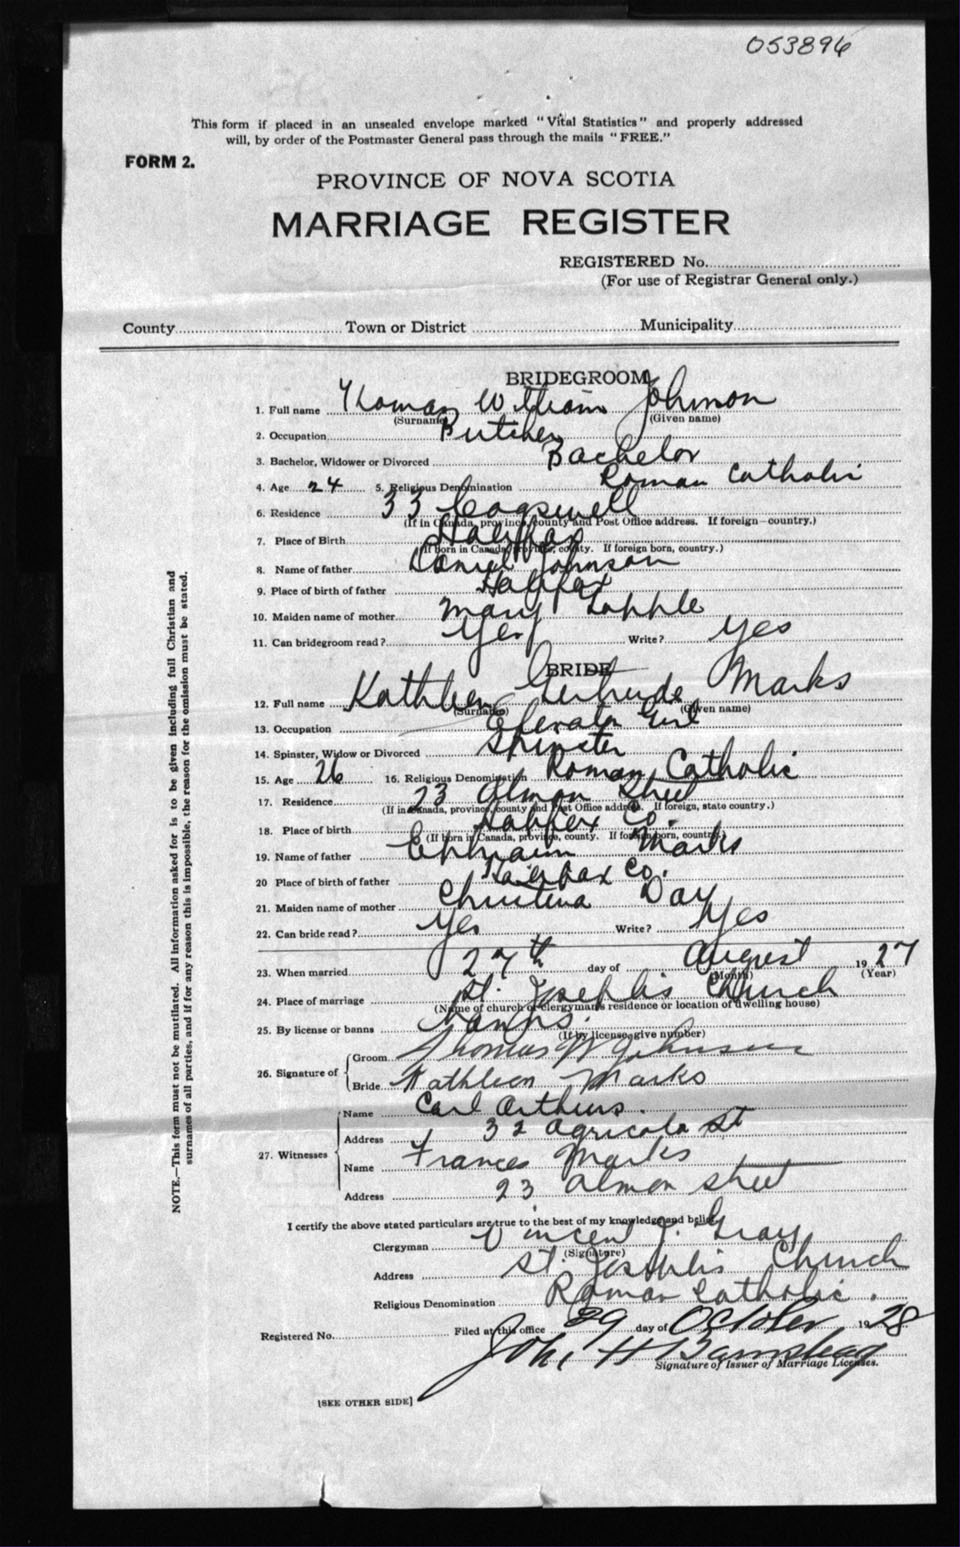 053896
This form if placed in an unsealed envelope marked "Vital Statistics" and properly addressed
will, by order of the Postmaster General pass through the mails "FREE."
FORM 2.
PROVINCE OF NOVA SCOTIA
MARRIAGE REGISTER
REGISTERED No.
(For use of Registrar General only.)
County Town or District Municipality
BRIDEGROOM
1. Full name Thomas William Johnson
(Surname) (Given name)
2. Occupation Butcher
3. Bachelor, Widower or Divorced Bachelor
4. Age 24 5. Religious Denomination Roman Catholic
6. Residence 33 Cogswell
(If in Canada, province, county and Post Office address. If foreign—country.)
7. Place of Birth Halifax
(If born in Canada, province, county. If foreign born, country.)
8. Name of father Daniel Johnson
9. Place of birth of father Halifax
10. Maiden name of mother Mary
11. Can bridegroom read? Yes Write? Yes
BRIDE
12. Full name Kathleen Gertrude Marks
(Surname) (Given name)
13. Occupation Elevator Girl
14. Spinster, Widow or Divorced Spinster
15. Age 26 16. Religious Denomination Roman Catholic
17. Residence 23 Almon Street
(If in Canada, province, county and Post Office address. If foreign, state country.)
18. Place of birth Halifax Co.
(If born in Canada, province, county. If foreign born, country.)
19. Name of father Ephraim Marks
20 Place of birth of father Halifax Co.
21. Maiden name of mother Christina Day
22. Can bride read? Yes Write? Yes
23. When married 27th day of August 1927
(Month) (Year)
24. Place of marriage St. Joseph's Church
(Name of church or clergyman's residence or location of dwelling house)
25. By license or banns banns.
(If by license, give number)
26. Signature of
Groom Thomas W Johnson
Bride Kathleen Marks
27. Witnesses
Name Carl Arthurs.
Address 32 Agricola St
Name Frances Marks
Address 23 Almon Street
I certify the above stated particulars are true to the best of my knowledge and belief.
Clergyman Vincent J. Gray
(Signature)
Address St. Joseph's Church
Religious Denomination Roman Catholic.
Registered No. Filed at this office 29 day of October 1928
John H Barnstead
Signature of Issuer of Marriage Licenses.
[SEE OTHER SIDE]
NOTE.—This form must not be mutilated. All information asked for is to be given including full Christian and
surnames of all parties, and if for any reason this is impossible, the reason for the omission must be stated.